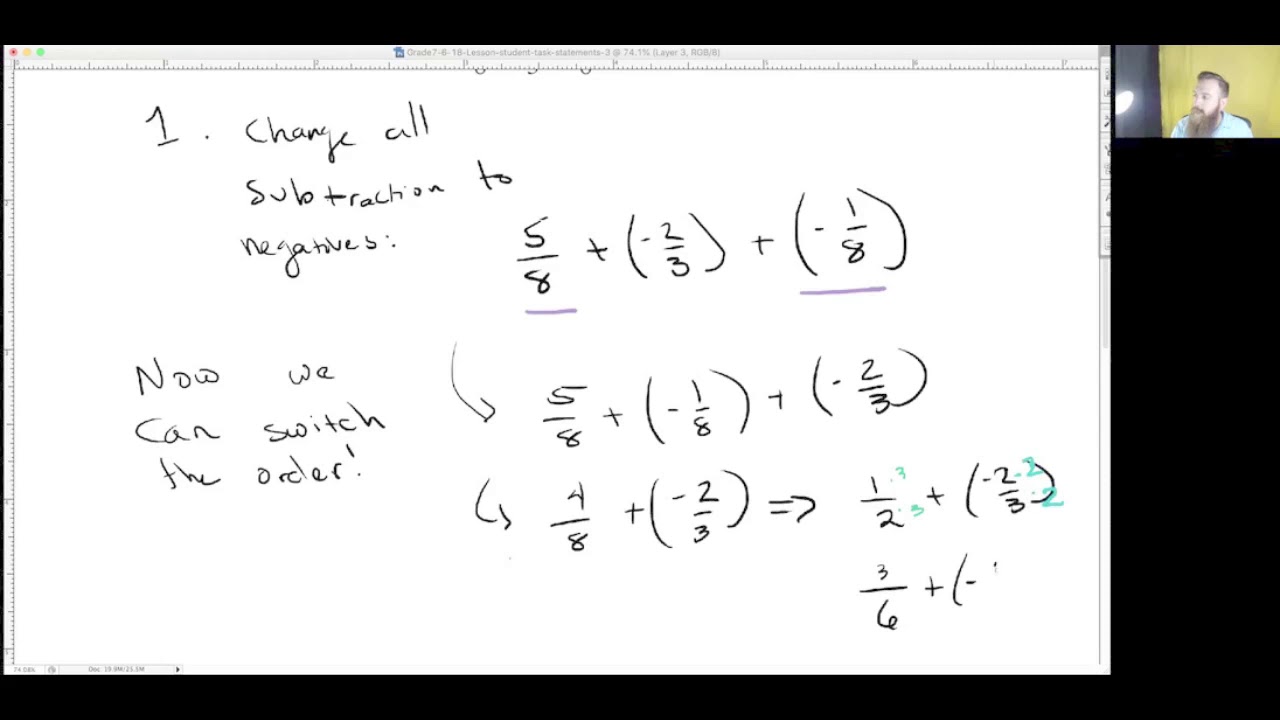 Grade7-6-18-Lesson-student-task-statements-3 @ 74.1% (Layer 3, RGB/8)
1. Change all
subtraction to
negatives:
5/8 + (-2/3) + (-1/8)
Now we
can switch
the order!
5/8 + (-1/8) + (-2/3)
4/8 + (-2/3) => 1·3/2·3 + (-2·2/3·2)
3/6 + (-
74.08%
Doc: 19.9M/25.5M